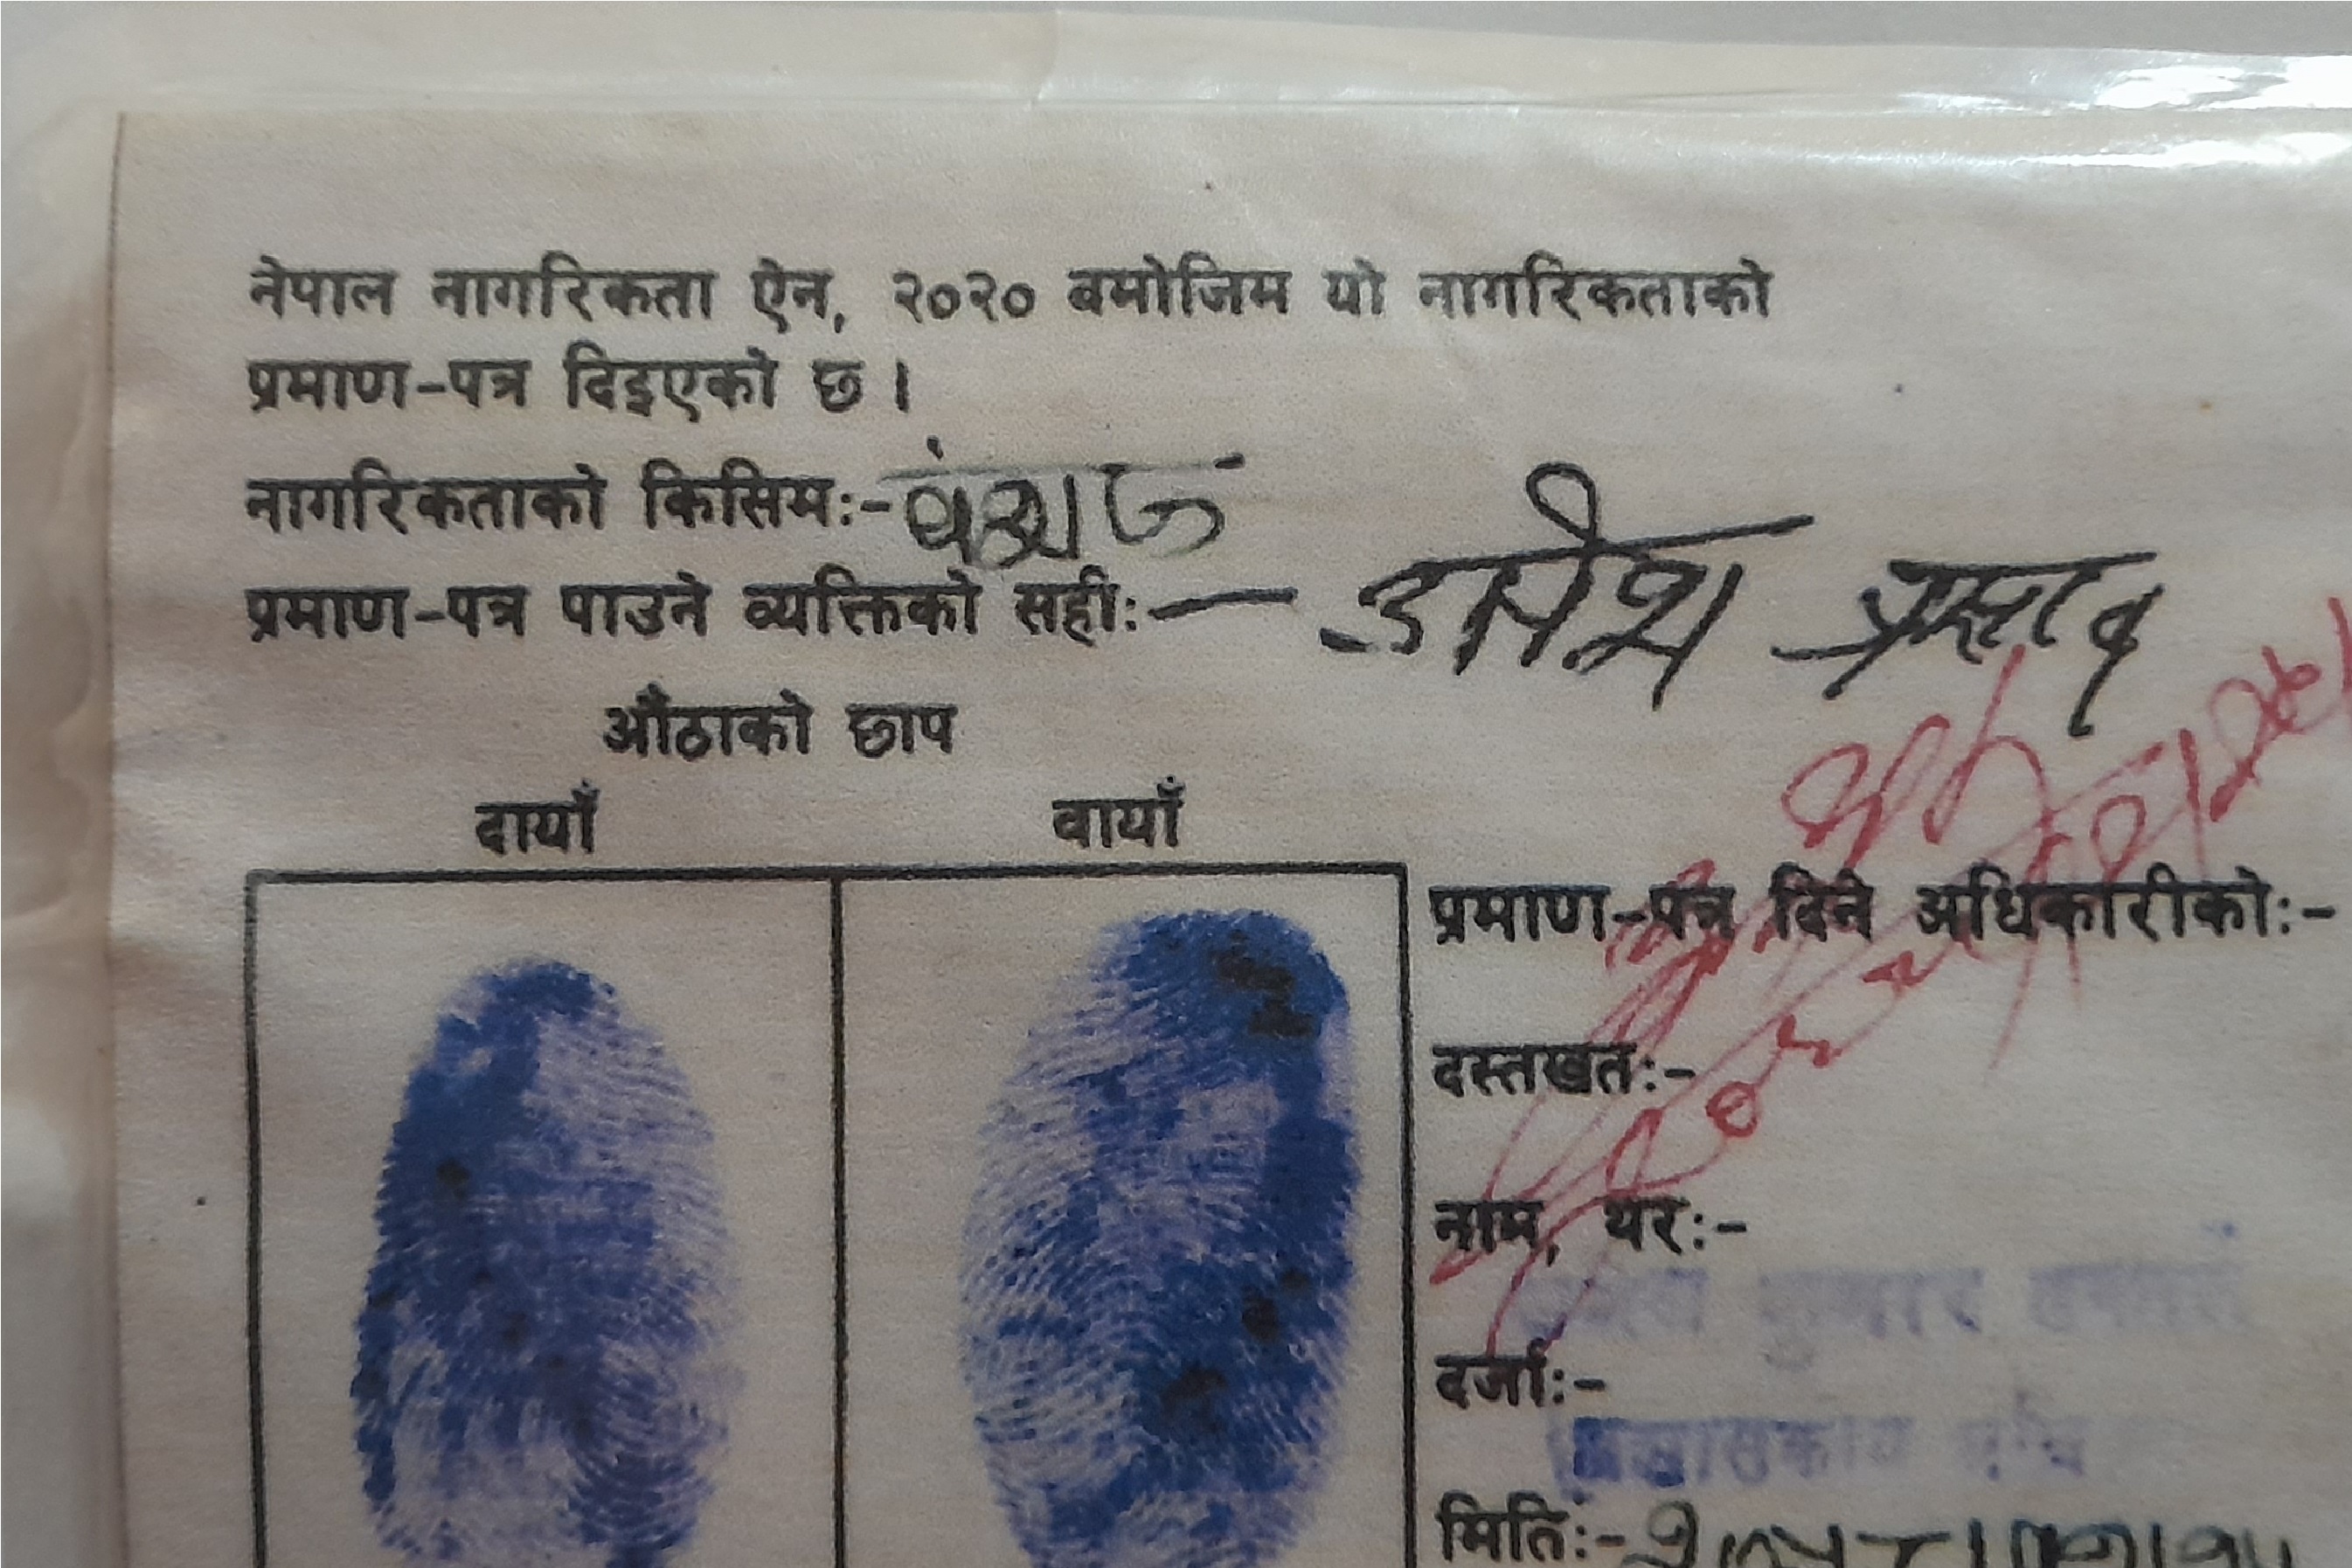 नेपाल नागरिकता ऐन, २०२० बमोजिम यो नागरिकताको
प्रमाण-पत्र दिइएको छ ।
नागरिकताको किसिम:- वंशज
प्रमाण-पत्र पाउने व्यक्तिको सही:- उमेश प्रसाद
औंठाको छाप
दायाँ वायाँ
प्रमाण-पत्र दिने अधिकारीको:-
दस्तखत:-
नाम, थर:-
कुमार
दर्जा:-
मिति:-